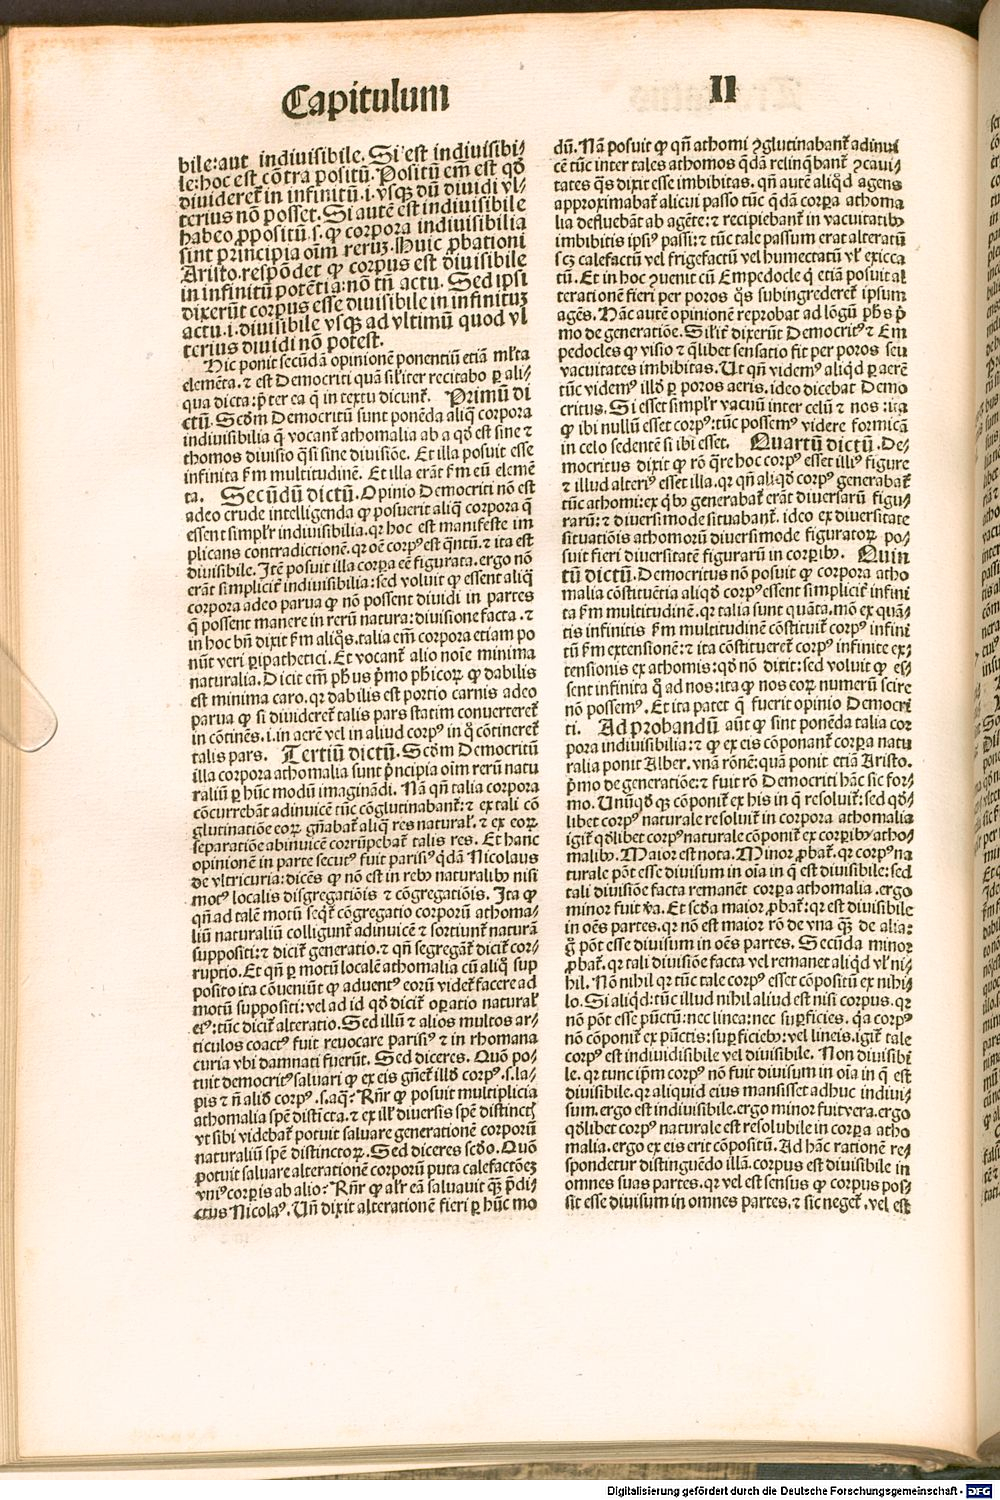 Capitulum II
bile:aut indiuisibile. Si est indiuisibi/
le:hoc est cōtra positū. Positū em̄ est qd̄
diuideret᷑ in infinitū.i.vsq̨ dū diuidi vl/
terius nō posset. Si autē est indiuisibile
habeo ꝓpositū.s.ꝙ corpora indiuisibilia
sint principia oīm rerūꝫ. Huic ꝓbationi
Aristo.respōdet ꝙ corpus est diuisibile
in infinitū potētia:nō tn̄ actu. Sed ipsi
dixerūt corpus esse diuisibile in infinitūꝫ
actu.i.diuisibile vsq̨ ad vltimū quod vl
terius diuidi nō potest.
Hic ponit secūdā opinionē ponentiū etiā ml̄ta
elemēta.⁊ est Democriti quā sil̓iter recitabo ꝑ ali/
qua dicta:p̄ter ea q̄ in textu dicunt᷑. Primū di
ctū. Scd̄m Democritū sunt ponēda aliq̄ corpora
indiuisibilia q̄ vocant᷑ athomalia ab a qd̄ est sine ⁊
thomos diuisio q̄si sine diuisiōe. Et illa posuit esse
infinita fm̄ multitudinē. Et illa erāt fm̄ eū elemē
ta. Secūdū dictū. Opinio Democriti nō est
adeo crude intelligenda ꝙ posuerit aliq̄ corpora q̄
essent simpl̓r indiuisibilia.qꝛ hoc est manifeste im
plicans contradictionē.qꝛ oē corpꝰ est q̄ntū.⁊ ita est
diuisibile. Itē posuit illa corpꝑa eē figurata.ergo nō
erāt simplicit᷑ indiuisibilia:sed voluit ꝙ essent aliq̄
corpora adeo parua ꝙ nō possent diuidi in partes
q̄ possent manere in rerū natura:diuisione facta.⁊
in hoc bn̄ dixit fm̄ aliq̄s.talia em̄ corpora etiam po
nūt veri ꝑipathetici. Et vocant᷑ alio noīe minima
naturalia. Dicit em̄ ph̄us p̄mo ph̄icoꝝ ꝙ dabilis
est minima caro.qꝛ dabilis est portio carnis adeo
parua ꝙ si diuideret᷑ talis pars statim conuerteret᷑
in cōtinēs.i.in aerē vel in aliud corpꝰ in q̊ cōtineret᷑
talis pars. Tertiū dictū. Scd̄m Democritū
illa corpora athomalia sunt p̄ncipia oīm rerū natu
raliū ꝑ hūc modū imaginādi. Nā qn̄ talia corpora
cōcurrebāt adinuicē tūc cōglutinabant᷑:⁊ ex tali cō
glutinatiōe eoꝝ gn̄abat᷑ aliq̄ res natural̓.⁊ ex eoꝝ
separatiōe abinuicē corrūpebat᷑ talis res. Et hanc
opinionē in parte secutꝰ fuit parisiꝰ q̄dā Nicolaus
de vltricuria:dicēs ꝙ nō est in rebꝰ naturalibꝰ nisi
motꝰ localis disgregatiōis ⁊ cōgregatiōis. Ita ꝙ
qn̄ ad talē motū seq̄t᷑ cōgregatio corporū athoma/
liū naturaliū colligunt᷑ adinuicē ⁊ sortiunt᷑ naturā
suppositi:⁊ dicit᷑ generatio.⁊ qn̄ segregāt᷑ dicit᷑ cor/
ruptio. Et qn̄ ꝑ motū localē athomalia cū aliq̊ sup
posito ita cōueniūt ꝙ aduentꝰ eorū videt᷑ facere ad
motū suppositi:vel ad id qd̄ dicit᷑ oꝑatio natural̓
eiꝰ:tūc dicit᷑ alteratio. Sed illū ⁊ alios multos ar/
ticulos coactꝰ fuit reuocare parisiꝰ ⁊ in rhomana
curia vbi damnati fuerūt. Sed diceres. Quō po/
tuit democritꝰ saluari ꝙ ex eis gn̄et᷑ illd̄ corpꝰ.s.la/
pis ⁊ n̄ aliō corpꝰ.s.aq̄? Rn̄r ꝙ posuit multiplicia
athomalia spē distīcta.⁊ ex ill̓ diuersis spē distinctꝭ
vt sibi videbat᷑ potuit saluare generationē corporū
naturaliū spē distinctoꝝ. Sed diceres scd̄o. Quō
potuit saluare alterationē corporū puta calefactōeꝫ
vniꝰ corꝑis ab alio? Rn̄r ꝙ al̓r eā saluauit q̄ꝫ p̄di/
ctus Nicolaꝰ. Un̄ dixit alterationē fieri ꝑ hūc mo
dū. Nā posuit ꝙ qn̄ athomi ꝯglutinabant᷑ adinui
cē tūc inter tales athomos q̄dā relinq̄bant᷑ ꝯcaui/
tates q̄s dixit esse imbibitas. qn̄ autē aliqd̄ agens
approximabat᷑ alicui passo tūc q̄dā corꝑa athoma
lia defluebāt ab agēte:⁊ recipiebant᷑ in vacuitatibꝰ
imbibitis ipsiꝰ passi:⁊ tūc tale passum erat alteratū
scꝫ calefactū vel frigefactū vel humectatū vl̓ exicca
tū. Et in hoc ꝯuenit cū Empedocle q̄ etiā posuit al
terationē fieri per poros q̄s subingrederet᷑ ipsum
agēs. Hāc autē opinionē reprobat ad lōgū ph̄s p̄
mo de generatiōe. Sil̓it᷑ dixerūt Democritꝰ ⁊ Em
pedocles ꝙ visio ⁊ q̄libet sensatio fit per poros seu
vacuitates imbibitas. Ut qn̄ videmꝰ aliqd̄ ꝑ aerē
tūc videmꝰ illd̄ ꝑ poros aeris.ideo dicebat Demo
critus. Si esset simpl̓r vacuū inter celū ⁊ nos:ita
ꝙ ibi nullū esset corpꝰ:tūc possemꝰ videre formicā
in celo sedentē si ibi esset. Quartū dictū. De/
mocritus dixit ꝙ rō q̄re hoc corpꝰ esset illiꝰ figure
⁊ illud alteriꝰ esset illa.qꝛ qn̄ aliqd̄ corpꝰ generabat᷑
tūc athomi:ex qbꝰ generabat᷑ erāt diuersarū figu/
rarū:⁊ diuersimode situabant᷑.ideo ex diuersitate
situatiōis athomorū diuersimode figuratoꝝ po/
suit fieri diuersitatē figurarū in corꝑibꝰ. Quin
tū dictū. Democritus nō posuit ꝙ corpora atho
malia cōstituētia aliqd̄ corpꝰ essent simplicit᷑ infini
ta fm̄ multitudinē.qꝛ talia sunt quāta.mō ex quā/
tis infinitis fm̄ multitudinē cōstituit᷑ corpꝰ infini
tū fm̄ extensionē:⁊ ita cōstitueret᷑ corpꝰ infinite ex/
tensionis ex athomis:qd̄ nō dixit:sed voluit ꝙ es/
sent infinita q̊ ad nos:ita ꝙ nos eoꝝ numerū scire
nō possemꝰ. Et ita patet q̄ fuerit opinio Democri
ti. Ad probandū aūt ꝙ sint ponēda talia cor
pora indiuisibilia:⁊ ꝙ ex eis cōponant᷑ corꝑa natu
ralia ponit Alber.vnā rōnē:quā ponit etiā Aristo.
p̄mo de generatiōe:⁊ fuit rō Democriti hāc sic for/
mo. Unūqd̄qꝫ cōponit᷑ ex his in q̄ resoluit᷑:sed qd̄/
libet corpꝰ naturale resoluit᷑ in corpora athomalia
igit᷑ qd̄libet corpꝰ naturale cōponit᷑ ex corꝑibꝰ atho/
malibꝰ. Maior est nota. Minor ꝓbat᷑.qꝛ corpꝰ na
turale pōt esse diuisum in oīa in q̄ est diuisibile:sed
tali diuisiōe facta remanēt corꝑa athomalia.ergo
minor fuit v̄a. Et scd̄a maior ꝓbat᷑:qꝛ est diuisibile
in oēs partes.qꝛ nō est maior rō de vna q̄ꝫ de alia:
g̊ pōt esse diuisum in oēs partes. Secūda minor
ꝓbat᷑.qꝛ tali diuisiōe facta vel remanet aliqd̄ vl̓ ni/
hil. Nō nihil qꝛ tūc tale corpꝰ esset cōpositū ex nihi/
lo. Si aliqd̄:tūc illud nihil aliud est nisi corpus.qꝛ
nō pōt esse pūctū:nec linea:nec suꝑficies. qꝛa corpꝰ
nō cōponit᷑ ex pūctis:suꝑficiebꝰ:vel lineis.igit᷑ tale
corpꝰ est indiuidisibile vel diuisibile. Non diuisibi
le.qꝛ tunc ip̄m corpꝰ nō fuit diuisum in oīa in q̄ est
diuisibile.qꝛ aliquid eius mansisset adhuc indiui/
sum.ergo est indiuisibile.ergo minor fuit vera.ergo
qd̄libet corpꝰ naturale est resolubile in corꝑa atho
malia.ergo ex eis erit cōpositū. Ad hāc rationē re/
spondetur distinguēdo illā.corpus est diuisibile in
omnes suas partes.qꝛ vel est sensus ꝙ corpus pos/
sit esse diuisum in omnes partes.⁊ sic neget᷑.vel est
Digitalisierung gefördert durch die Deutsche Forschungsgemeinschaft - DFG